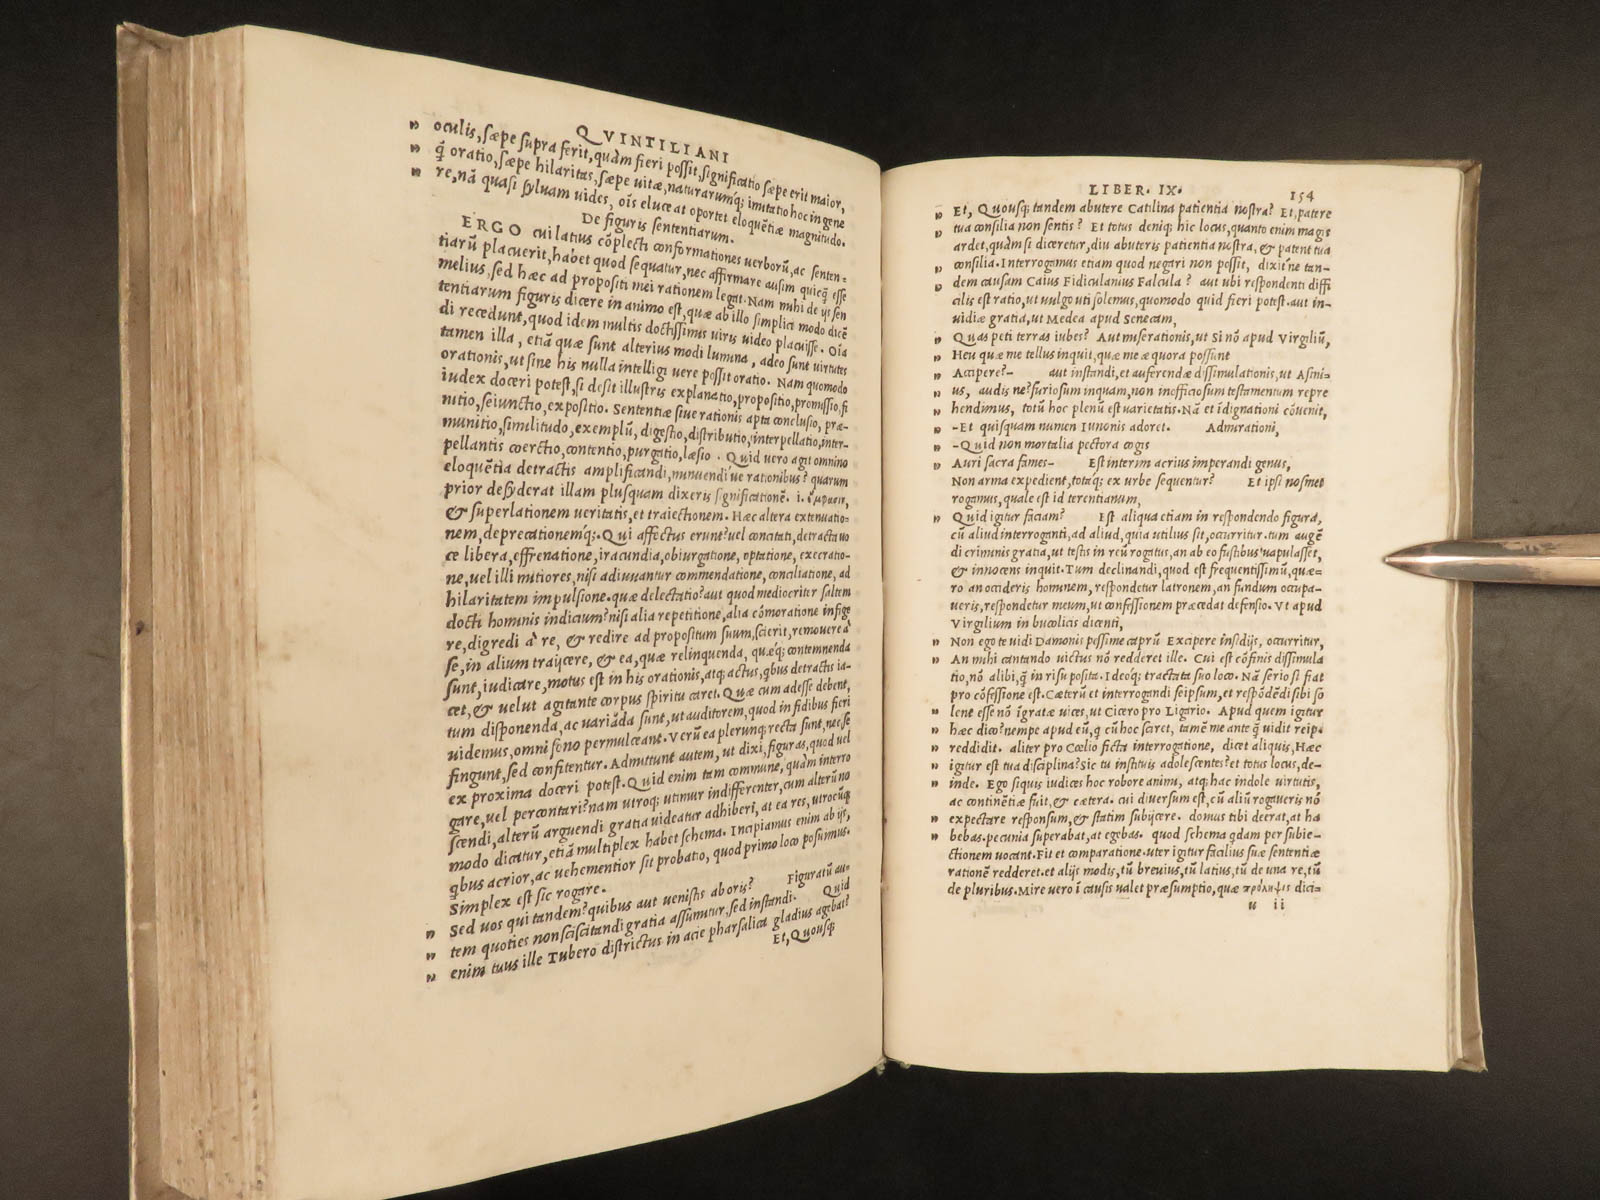 QVINTILIANI
” oculis, sæpe supra ferit, quàm fieri possit, significatio sæpe erit maior,
” q̃ oratio, sæpe hilaritas, sæpe uitæ, naturarumq́; imitatio hoc in gene
” re, nã quasi syluam uides, oĩs eluceat oportet eloquẽtiæ magnitudo.
De figuris sententiarum.
ERGO cui latius cõplecti conformationes uerborũ, ac senten-
tiarũ placuerit, habet quod sequatur, nec affirmare ausim quicq̃ esse
melius, sed hæc ad propositi mei rationem legat. Nam mihi de ijs sen
tentiarum figuris dicere in animo est, quæ ab illo simplici modo dicẽ
di recedunt, quod idem multis doctissimus uiris uideo placuisse. Oĩa
tamen illa, etiã quæ sunt alterius modi lumina, adeo sunt uirtutes
orationis, ut sine his nulla intelligi uere possit oratio. Nam quomodo
iudex doceri potest, si desit illustris explanatio, propositio, promissio, fi
nitio, seiunctio, expositio. Sententiæ siue rationis apta conclusio, præ-
munitio, similitudo, exemplũ, digestio, distributio, interpellatio, inter-
pellantis coerctio, contentio, purgatio, læsio. Quid uero agit omnino
eloquẽtia detractis amplificandi, minuendi ue rationibus? quarum
prior desyderat illam plusquam dixeris significationẽ. i. ἔμφασιν,
& superlationem ueritatis, et traiectionem. Hæc altera extenuatio-
nem, deprecationemq́;. Qui affectus erunt? uel concitati, detracta uo
ce libera, effrenatione, iracundia, obiurgatione, optatione, execratio-
ne, uel illi mitiores, nisi adiuuantur commendatione, conciliatione, ad
hilaritatem impulsione. quæ delectatio? aut quod mediocriter saltem
docti hominis indicium? nisi alia repetitione, alia cõmoratione infige
re, digredi à re, & redire ad propositum suum, scierit, remouere à
se, in alium traijcere, & ea, quæ relinquenda, quæq; contemnenda
sunt, iudicare, motus est in his orationis, atq; actus, qbus detractis ia-
cet, & uelut agitante corpus spiritu caret. Quæ cum adesse debent,
tum disponenda, ac uariãda sunt, ut auditorem, quod in fidibus fieri
uidemus, omni sono permulceant. Verũ ea plerunq; recta sunt, nec se
fingunt, sed confitentur. Admittunt autem, ut dixi, figuras, quod uel
ex proxima doceri potest. Quid enim tam commune, quàm interro
gare, uel percontari? nam utroq; utimur indifferenter, cum alterũ no
scendi, alterũ arguendi gratia uideatur adhiberi, at ea res, utrocũq;
modo dicatur, etiã multiplex habet schema. Incipiamus enim ab ijs,
qbus acrior, ac uehementior sit probatio, quod primo loco posuimus.
Simplex est sic rogare.
” Sed uos qui tandem? quibus aut uenistis ab oris? Figuratũ au-
” tem quoties non sciscitandi gratia assumitur, sed instandi. Quid
” enim tuus ille Tubero districtus in acie pharsalica gladius agebat?
Et, Quousq;
LIBER. IX. 154
” Et, Quousq; tandem abutere Catilina patientia nostra? Et, patere
” tua consilia non sentis? Et totus deniq; hic locus, quanto enim magis
ardet, quàm si diceretur, diu abuteris patientia nostra, & patent tua
” consilia. Interrogamus etiam quod negari non possit, dixit'ne tan-
” dem causam Caius Fidiculanius Falcula? aut ubi respondenti diffi
cilis est ratio, ut uulgo uti solemus, quomodo quid fieri potest. aut in-
uidiæ gratia, ut Medea apud Senecam,
” Quas peti terras iubes? Aut miserationis, ut Sinõ apud Virgiliũ,
” Heu quæ me tellus inquit, quæ me æquora possunt
” Accipere?- aut instandi, et auferendæ dissimulationis, ut Asini-
” us, audis ne? furiosum inquam, non inofficiosum testamentum repre
” hendimus, totũ hoc plenũ est uarietatis. Nã et idignationi cõuenit,
” -Et quisquam numen Iunonis adoret. Admirationi,
” -Quid non mortalia pectora cogis
” Auri sacra fames- Est interim acrius imperandi genus,
Non arma expedient, totaq; ex urbe sequentur? Et ipsi nosmet
rogamus, quale est id terentianum,
” Quid igitur faciam? Est aliqua etiam in respondendo figura,
cũ aliud interroganti, ad aliud, quia utilius sit, occurritur. tum augẽ
di criminis gratia, ut testis in reũ rogatus, an ab eo fustibus uapulasset,
& innocens inquit. Tum declinandi, quod est frequentissimũ, quæ-
ro an occideris hominem, respondetur latronem, an fundum occupa-
ueris, respondetur meum, ut confessionem præcedat defensio. Vt apud
Virgilium in bucolicis dicenti,
” Non ego te uidi Damonis pessime caprũ Excipere insidijs, occurritur,
” An mihi cantando uictus nõ redderet ille. Cui est cõfinis dissimula
tio, nõ alibi, q̃ in risu posita. Ideoq; tractata suo loco. Nã serio si fiat
pro cõfessione est. Cæterũ et interrogandi seipsum, et respõdẽdi sibi so
” lent esse nõ ĩgratæ uices, ut Cicero pro Ligario. Apud quem igitur
” hæc dico? nempe apud eũ, q cũ hoc sciret, tamẽ me ante q̃ uidit reip.
” reddidit. aliter pro Cœlio ficta interrogatione, dicet aliquis, Hæc
” igitur est tua disciplina? sic tu instituis adolescentes? et totus locus, de-
” inde. Ego siquis iudices hoc robore animi, atq; hac indole uirtutis,
ac continẽtiæ fuit, & cætera. cui diuersum est, cũ aliũ rogaueris nõ
” expectare responsum, & statim subijcere. domus tibi deerat, at ha
” bebas. pecunia superabat, at egebas. quod schema qdam per subie-
ctionem uocant. Fit et comparatione. uter igitur facilius suæ sententiæ
rationẽ redderet. et alijs modis, tũ breuius, tũ latius, tũ de una re, tũ
de pluribus. Mire uero ĩ causis ualet præsumptio, quæ πρόληψις dici-
u ii